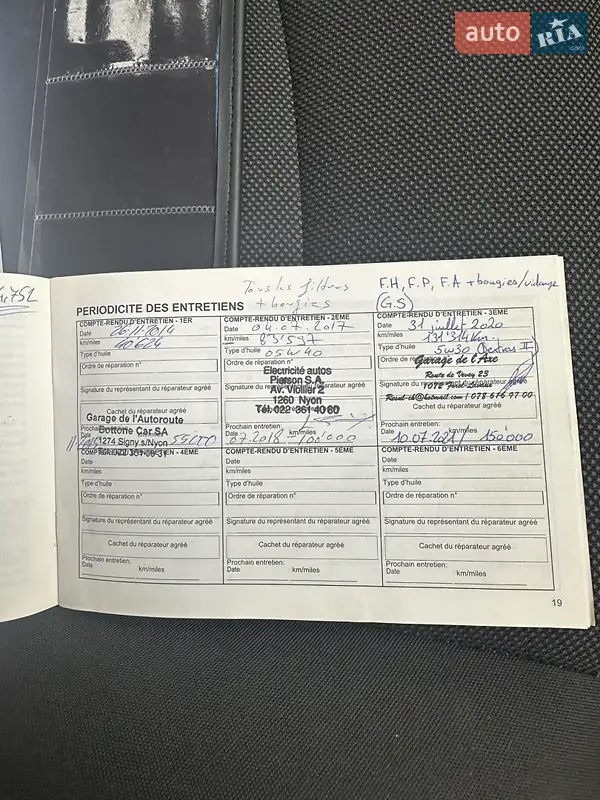 auto RIA
.com
Tous les filtres
+ bougies
F.H, F.P, F.A + bougies/vidange
G.S
PERIODICITE DES ENTRETIENS
COMPTE-RENDU D'ENTRETIEN - 1ER
Date 26.11.2014
km/miles 40624
Type d'huile
Ordre de réparation n°
Signature du représentant du réparateur agréé
Cachet du réparateur agréé
Garage de l'Autoroute
Bottone Car SA
1274 Signy s/Nyon
Prochain entretien:
Date km/miles
COMPTE-RENDU D'ENTRETIEN - 2EME
Date 04.07.2017
km/miles 83'597
Type d'huile 05w40
Ordre de réparation n°
Electricité autos
Pierson S.A.
Av. Viollier 2
1260 Nyon
Tél. 022 361 40 80
Signature du représentant du réparateur agréé
Cachet du réparateur agréé
Prochain entretien:
Date 07.2018 km/miles 100'000
COMPTE-RENDU D'ENTRETIEN - 3EME
Date 31 juillet 2020
km/miles 131'314 km
Type d'huile 5w30 (Dextros II)
Ordre de
Garage de l'Axe
Route de Vevey 23
078 676 97 00
Signature du représentant du réparateur agréé
Cachet du réparateur agréé
Prochain entretien:
Date 10.07.2021 km/miles 150'000
COMPTE-RENDU D'ENTRETIEN - 4EME
Date
km/miles
Type d'huile
Ordre de réparation n°
Signature du représentant du réparateur agréé
Cachet du réparateur agréé
Prochain entretien:
Date km/miles
COMPTE-RENDU D'ENTRETIEN - 5EME
Date
km/miles
Type d'huile
Ordre de réparation n°
Signature du représentant du réparateur agréé
Cachet du réparateur agréé
Prochain entretien:
Date km/miles
COMPTE-RENDU D'ENTRETIEN - 6EME
Date
km/miles
Type d'huile
Ordre de réparation n°
Signature du représentant du réparateur agréé
Cachet du réparateur agréé
Prochain entretien:
Date km/miles
19